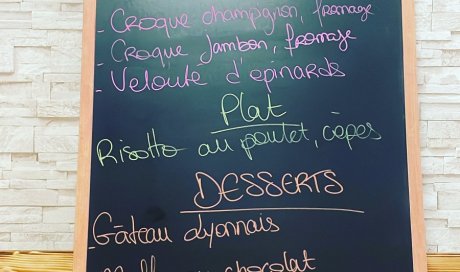 - Croque champignon, fromage
- Croque Jambon, fromage
- Velouté d'épinards
Plat
Risotto au poulet, cèpes
DESSERTS
- Gâteau Lyonnais
chocolat